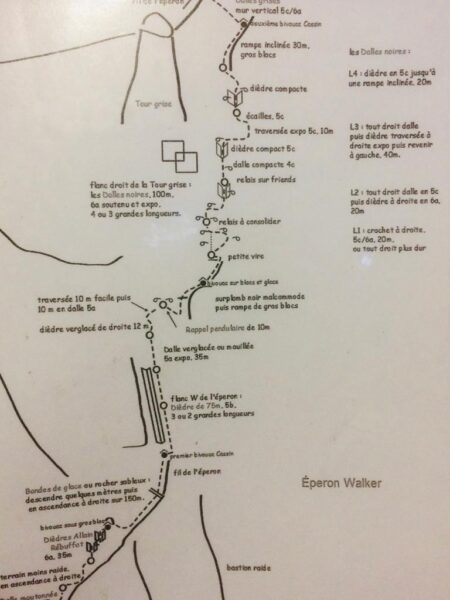 fil de l'éperon
Dalles grises
mur vertical 5c/6a
deuxième bivouac Cassin
rampe inclinée 30m,
gros blocs
dièdre compacte
Tour grise
écailles, 5c
traversée expo 5c, 10m
dièdre compact 5c
dalle compacte 4c
relais sur friends
flanc droit de la Tour grise :
les Dalles noires, 100m,
6a soutenu et expo,
4 ou 3 grandes longueurs.
relais à consolider
petite vire
bivouac sur blocs et glace
traversée 10 m facile puis
10 m en dalle 5a
surplomb noir malcommode
puis rampe de gros blocs
dièdre verglacé de droite 12 m
Rappel pendulaire de 10m
Dalle verglacée ou mouillée
5a expo, 35m
flanc W de l'éperon :
Dièdre de 75m, 5b,
3 ou 2 grandes longueurs
premier bivouac Cassin
fil de l'éperon
Bandes de glace ou rocher sableux :
descendre quelques mètres puis
en ascendance à droite sur 150m.
bivouac sous gros bloc
Dièdres Allain
Rébuffat
6a, 35m
terrain moins raide,
en ascendance à droite
Dalle moutonnée
bastion raide
les Dalles noires :
L4 : dièdre en 5c jusqu'à
une rampe inclinée, 20m
L3 : tout droit dalle
puis dièdre traversée à
droite expo puis revenir
à gauche, 40m.
L2 : tout droit dalle en 5c
puis dièdre à droite en 6a,
20m
L1 : crochet à droite,
5c/6a, 20m,
ou tout droit plus dur
Éperon Walker